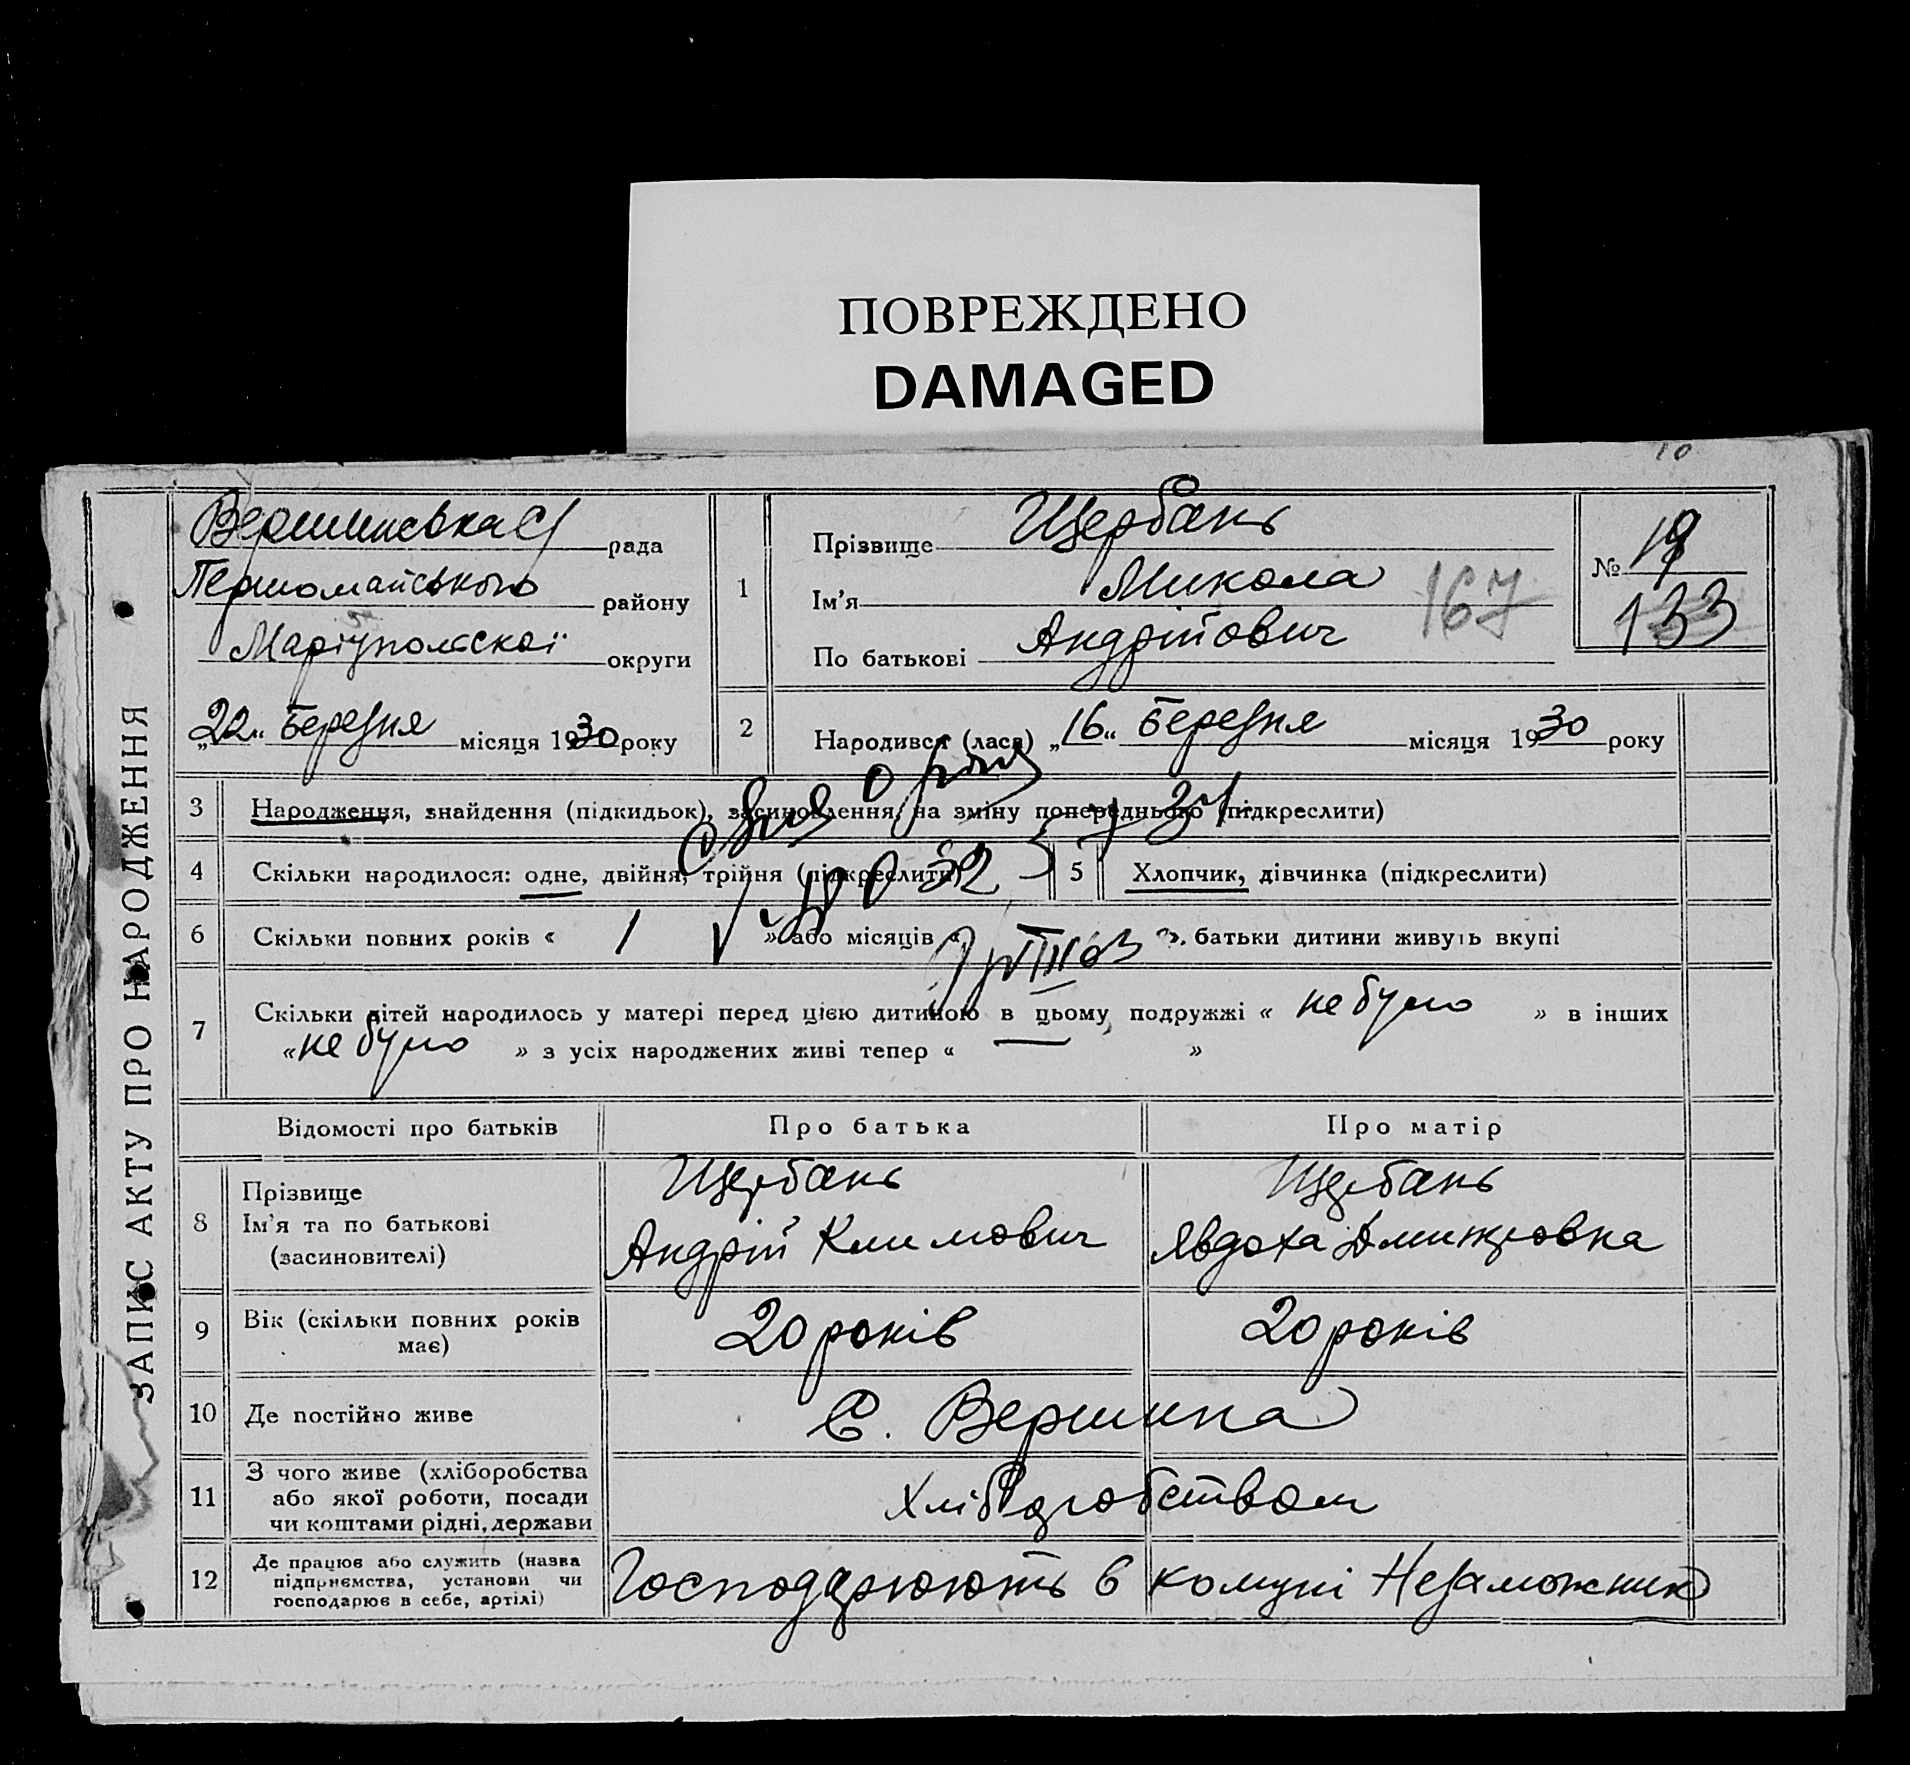 ПОВРЕЖДЕНО
DAMAGED
10
ЗАПИС АКТУ ПРО НАРОДЖЕННЯ
Вершинська С/рада
Першомайського району
Маріупольскої округи
„22“ Березня місяця 1930 року
1
Прізвище Щербань
Ім'я Микола
По батькові Андрійович
167
№ 19
133
2
Народився (лася) „16“ Березня місяця 1930 року
3 Народження, знайдення (підкидьок), засиновлення, на зміну попереднього (підкреслити)
4 Скільки народилося: одне, двійня, трійня (підкреслити)
5 Хлопчик, дівчинка (підкреслити)
6 Скільки повних років « 1 » або місяців « ». батьки дитини живуть вкупі
7 Скільки дітей народилось у матері перед цією дитиною в цьому подружжі « не було » в інших
« не було » з усіх народжених живі тепер « — »
Відомості про батьків Про батька Про матір
8 Прізвище
Ім'я та по батькові
(засиновителі)
Щербань
Андрій Климович
Щербань
Явдоха Дмитровна
9 Вік (скільки повних років має)
20 років
20 років
10 Де постійно живе
С. Вершина
11 З чого живе (хліборобства
або якої роботи, посади
чи коштами рідні, держави
Хліборобством
12 Де працює або служить (назва
підприємства, установи чи
господарює в себе, артілі)
Господарюють в комуні Незаможник